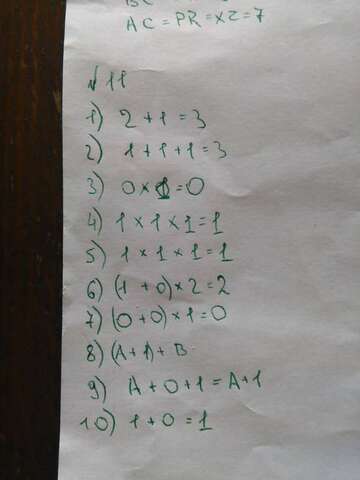 AC = PR = XZ = 7
№ 11
1) 2 + 1 = 3
2) 1 + 1 + 1 = 3
3) 0 × 1 = 0
4) 1 × 1 × 1 = 1
5) 1 × 1 × 1 = 1
6) (1 + 0) × 2 = 2
7) (0 + 0) × 1 = 0
8) (A + 1) + B
9) A + 0 + 1 = A + 1
10) 1 + 0 = 1